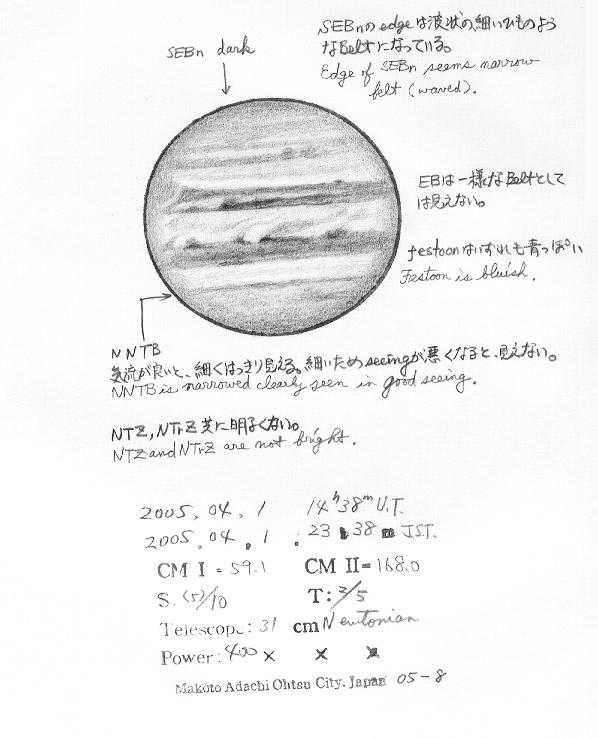 SEBnのedgeは波状の、細いひものよう
なBeltになっている。
Edge of SEBn seems narrow
belt (waved).
SEBn dark
EBは一様なBeltとして
は見えない。
festoonはいずれも青っぽい
Festoon is bluish.
NNTB
気流が良いと、細くはっきり見える。細いためseeingが悪くなると、見えない。
NNTB is narrowed clearly seen in good seeing.
NTZ, NTrZ 共に明るくない。
NTZ and NTrZ are not bright.
2005. 04. 1 14h38m U.T.
2005. 04. 1. 23 38 JST.
CM I = 59.1 CM II = 168.0
S. (5)/10 T: /5
Telescope: 31 cm Newtonian
Power: 400 × × ×
Makoto Adachi Ohtsu City. Japan 05-8